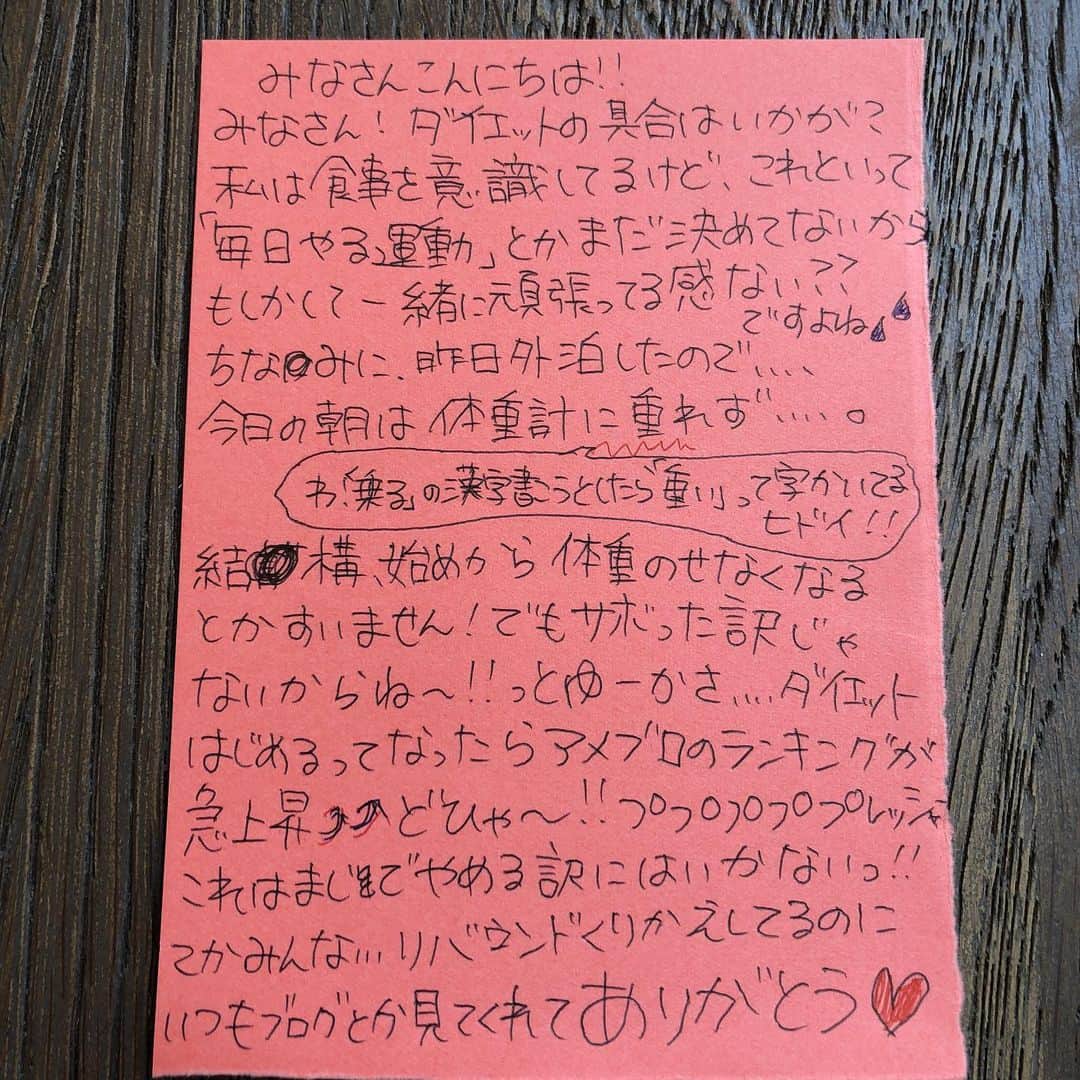 みなさんこんにちは!!
みなさん!ダイエットの具合はいかが?
私は食事を意識してるけど、これといって
「毎日やる運動」とかまだ決めてないから
もしかして一緒に頑張ってる感ない??
ですよね
ちなみに、昨日外泊したので、、、、
今日の朝は体重計に重れず、、、、。
わ!「乗る」の漢字書こうとしたら「重い」って字かいてる
ヒドイ!!
結構、始めから体重のせなくなる
とかすいません!でもサボった訳じゃ
ないからね〜!!っとゆーかさ、、、、ダイエット
はじめるってなったらアメブロのランキングが
急上昇 どひゃ〜!!プププププレッシャ
これはまじでやめる訳にはいかないっ!!
てかみんな、、、リバウンドくりかえしてるのに
いつもブログとか見てくれてありがとう